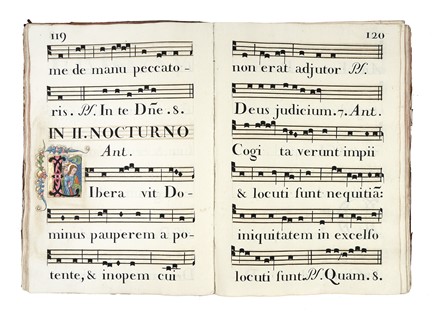 119
me de manu peccato-
ris. Ps. In te Dñe. 8.
IN II. NOCTURNO
Ant.
Libera vit Do-
minus pauperem a po-
tente, & inopem cui
120
non erat adjutor Ps.
Deus judicium. 7. Ant.
Cogi ta verunt impii
& locuti sunt nequitiā:
iniquitatem in excelso
locuti sunt. Ps. Quam. 8.